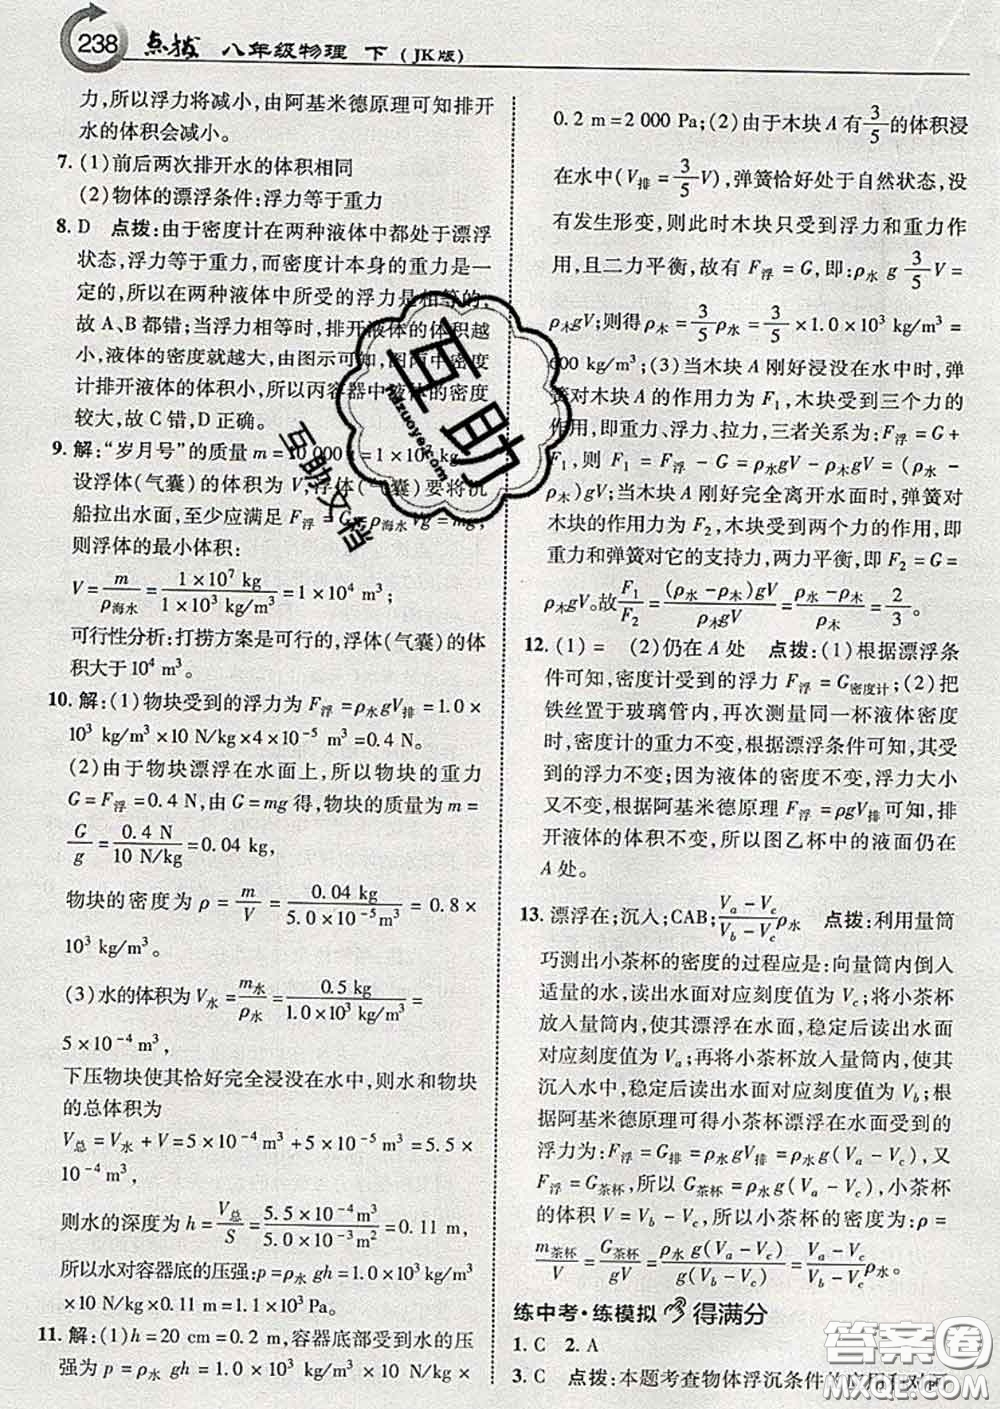 238 点拨 八年级物理 下 (JK版)
力,所以浮力将减小,由阿基米德原理可知排开
水的体积会减小。
7. (1)前后两次排开水的体积相同
(2)物体的漂浮条件:浮力等于重力
8. D 点拨:由于密度计在两种液体中都处于漂浮
状态,浮力等于重力,而密度计本身的重力是一
定的,所以在两种液体中所受的浮力是相等的,
故 A、B 都错;当浮力相等时,排开液体的体积越
小,液体的密度就越大,由图示可知,图丙中密度
计排开液体的体积小,所以丙容器中液体的密度
较大,故 C 错,D 正确。
9. 解:“岁月号”的质量 m = 10 000 t = 1×10⁷ kg
设浮体(气囊)的体积为 V,浮体(气囊)要将沉
船拉出水面,至少应满足 F浮 = G = ρ海水 Vg = mg,
则浮体的最小体积:
V = m/ρ海水 = (1×10⁷ kg)/(1×10³ kg/m³) = 1×10⁴ m³;
可行性分析:打捞方案是可行的,浮体(气囊)的体
积大于 10⁴ m³。
10. 解:(1)物块受到的浮力为 F浮 = ρ水gV排 = 1.0×
10³ kg/m³×10 N/kg×4×10⁻⁵ m³ = 0.4 N。
(2)由于物块漂浮在水面上,所以物块的重力
G = F浮 = 0.4 N。由 G = mg 得,物块的质量为 m =
G/g = (0.4 N)/(10 N/kg) = 0.04 kg,
物块的密度为 ρ = m/V = (0.04 kg)/(5.0×10⁻⁵ m³) = 0.8×
10³ kg/m³。
(3)水的体积为 V水 = m水/ρ水 = (0.5 kg)/(1.0×10³ kg/m³) =
5×10⁻⁴ m³,
下压物块使其恰好完全浸没在水中,则水和物块
的总体积为
V总 = V水 + V = 5×10⁻⁴ m³ + 5×10⁻⁵ m³ = 5.5×
10⁻⁴ m³,
则水的深度为 h = V总/S = (5.5×10⁻⁴ m³)/(5.0×10⁻³ m²) = 0.11 m,
所以水对容器底的压强:p = ρ水 gh = 1.0×10³ kg/m³
×10 N/kg×0.11 m = 1.1×10³ Pa。
11. 解:(1)h = 20 cm = 0.2 m,容器底部受到水的压
强为 p = ρ水 gh = 1.0×10³ kg/m³×10 N/kg×
0.2 m = 2 000 Pa;(2)由于木块 A 有3/5的体积浸
在水中(V排 = 3/5 V),弹簧恰好处于自然状态,没
有发生形变,则此时木块只受到浮力和重力作
用,且二力平衡,故有 F浮 = G,即:ρ水 g 3/5 V =
ρ木gV;则得 ρ木 = 3/5 ρ水 = 3/5×1.0×10³ kg/m³ =
600 kg/m³;(3)当木块 A 刚好浸没在水中时,弹
簧对木块 A 的作用力为 F₁,木块受到三个力的
作用,即重力、浮力、拉力,三者关系为:F浮 = G +
F₁,则 F₁ = F浮 − G = ρ水gV − ρ木gV = (ρ水 −
ρ木)gV;当木块 A 刚好完全离开水面时,弹簧对
木块的作用力为 F₂,木块受到两个力的作用,即
重力和弹簧对它的支持力,两力平衡,即 F₂ = G =
ρ木gV。故F₁/F₂ = (ρ水 − ρ木)gV/ρ木gV = (ρ水 − ρ木)/ρ木 = 2/3。
12. (1) = (2)仍在 A 处 点拨:(1)根据漂浮条
件可知,密度计受到的浮力 F浮 = G密度计;(2)把
铁丝置于玻璃管内,再次测量同一杯液体密度
时,密度计的重力不变,根据漂浮条件可知,其受
到的浮力不变;因为液体的密度不变,浮力大小
又不变,根据阿基米德原理 F浮 = ρgV排可知,排
开液体的体积不变,所以图乙杯中的液面仍在
A 处。
13. 漂浮在;沉入;CAB;(Va − Vc)/(Vb − Vc)ρ水 点拨:利用量筒
巧测出小茶杯的密度的过程应是:向量筒内倒入
适量的水,读出水面对应刻度值为 Vc;将小茶杯
放入量筒内,使其漂浮在水面,稳定后读出水面
对应刻度值为 Va;再将小茶杯放入量筒内,使其
沉入水中,稳定后读出水面对应刻度值为 Vb;根
据阿基米德原理可得小茶杯漂浮在水面受到的
浮力为:F浮 = G排 = ρ水gV排 = ρ水g(Va − Vc),又
F浮 = G茶杯,所以 G茶杯 = ρ水g(Va − Vc),小茶杯
的体积 V = Vb − Vc,所以小茶杯的密度为:ρ =
m茶杯/V = G茶杯/gV = ρ水 g(Va − Vc)/g(Vb − Vc) = (Va − Vc)/(Vb − Vc)ρ水。
练中考·练模拟 得满分
1. C 2. A
3. C 点拨:本题考查物体浮沉条件的应用和对
互助
huzuoyec.com
互助文档
答案圈
MXQE.COM